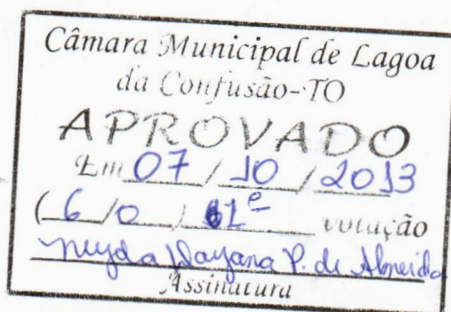 Câmara Municipal de Lagoa
da Confusão-TO
APROVADO
Em 07 / 10 / 2013
( 6 / 0 ) 1ª votação
Dayana P. de Almeida
Assinatura